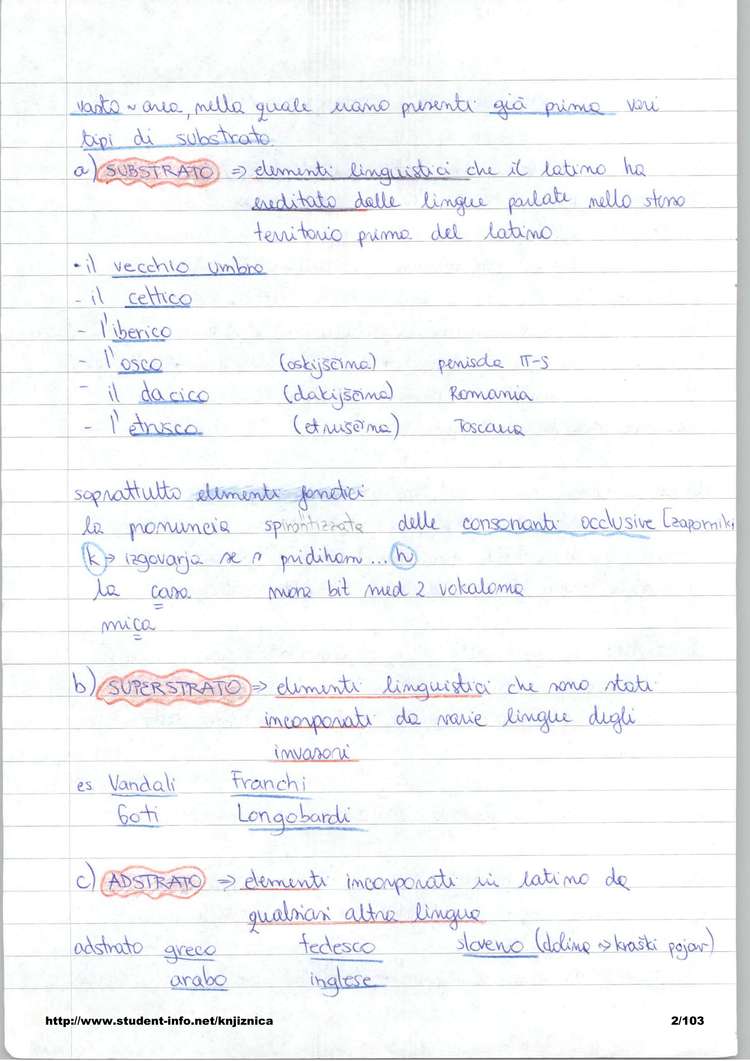 vasta area, nella quale erano presenti già prima vari
tipi di substrato
a) SUBSTRATO => elementi linguistici che il latino ha
ereditato dalle lingue parlate nello stesso
territorio prima del latino
- il vecchio umbro
- il celtico
- l'iberico
- l'osco (oskijščina) penisola IT-S
- il dacico (dakijščina) Romania
- l'etrusco (etruščina) Toscana
soprattutto elementi fonetici
la pronuncia spirantizzata delle consonanti occlusive [zaporniki
k -> izgovarja se s pridihom... h
la casa mora bit med 2 vokaloma
mica
b) SUPERSTRATO => elementi linguistici che sono stati
incorporati da varie lingue degli
invasori
es Vandali Franchi
Goti Longobardi
c) ADSTRATO => elementi incorporati in latino da
qualsiasi altra lingua
adstrato greco tedesco sloveno (dolina -> kraški pojav)
arabo inglese
http://www.student-info.net/knjiznica 2/103